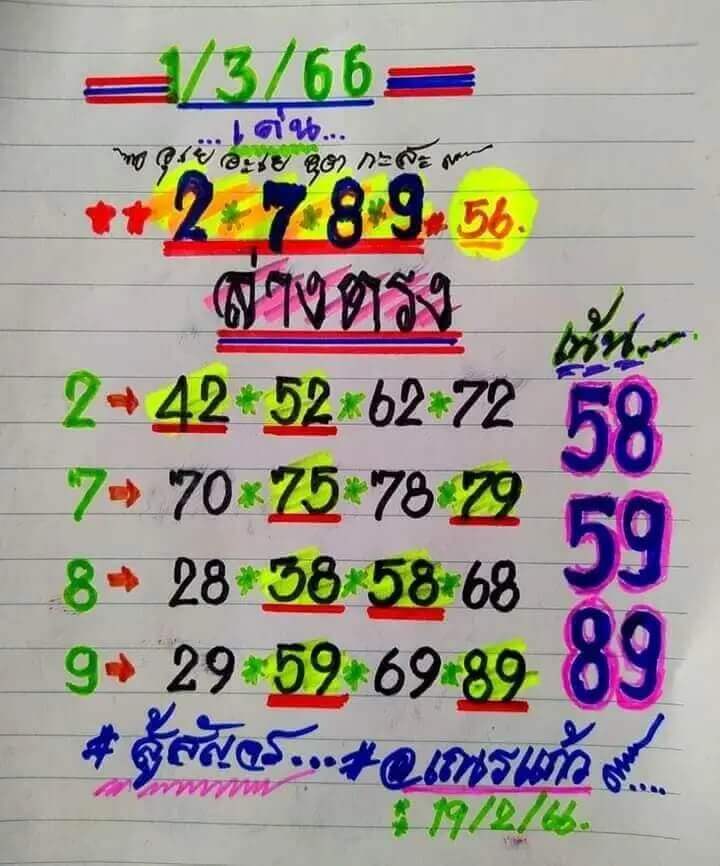 1/3/66
...เด่น...
2*7*8*9* 56.
ล่างตรง
เน้น...
2→42*52*62*72
58
7→70*75*78*79
59
8→28*38*58*68
9→29*59*69*89
89
#สู้สัญจร...#อ.เณรแก้ว
: 19/2/66.